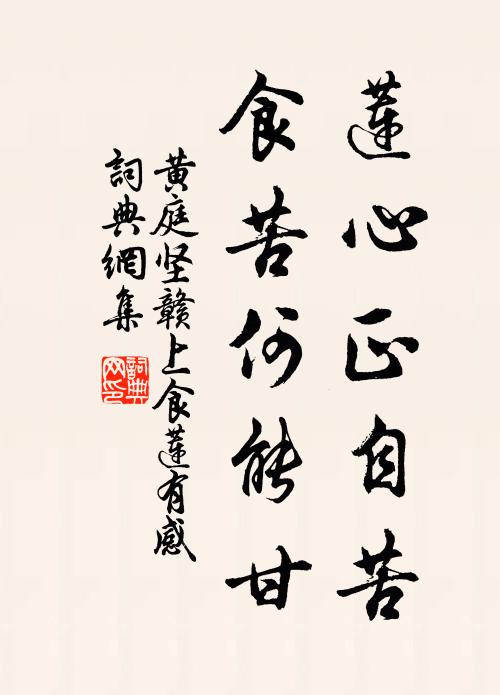 蓮心正自苦
食苦何能甘
黄庭坚贛上食蓮有感
詞典網集
詞典
网印